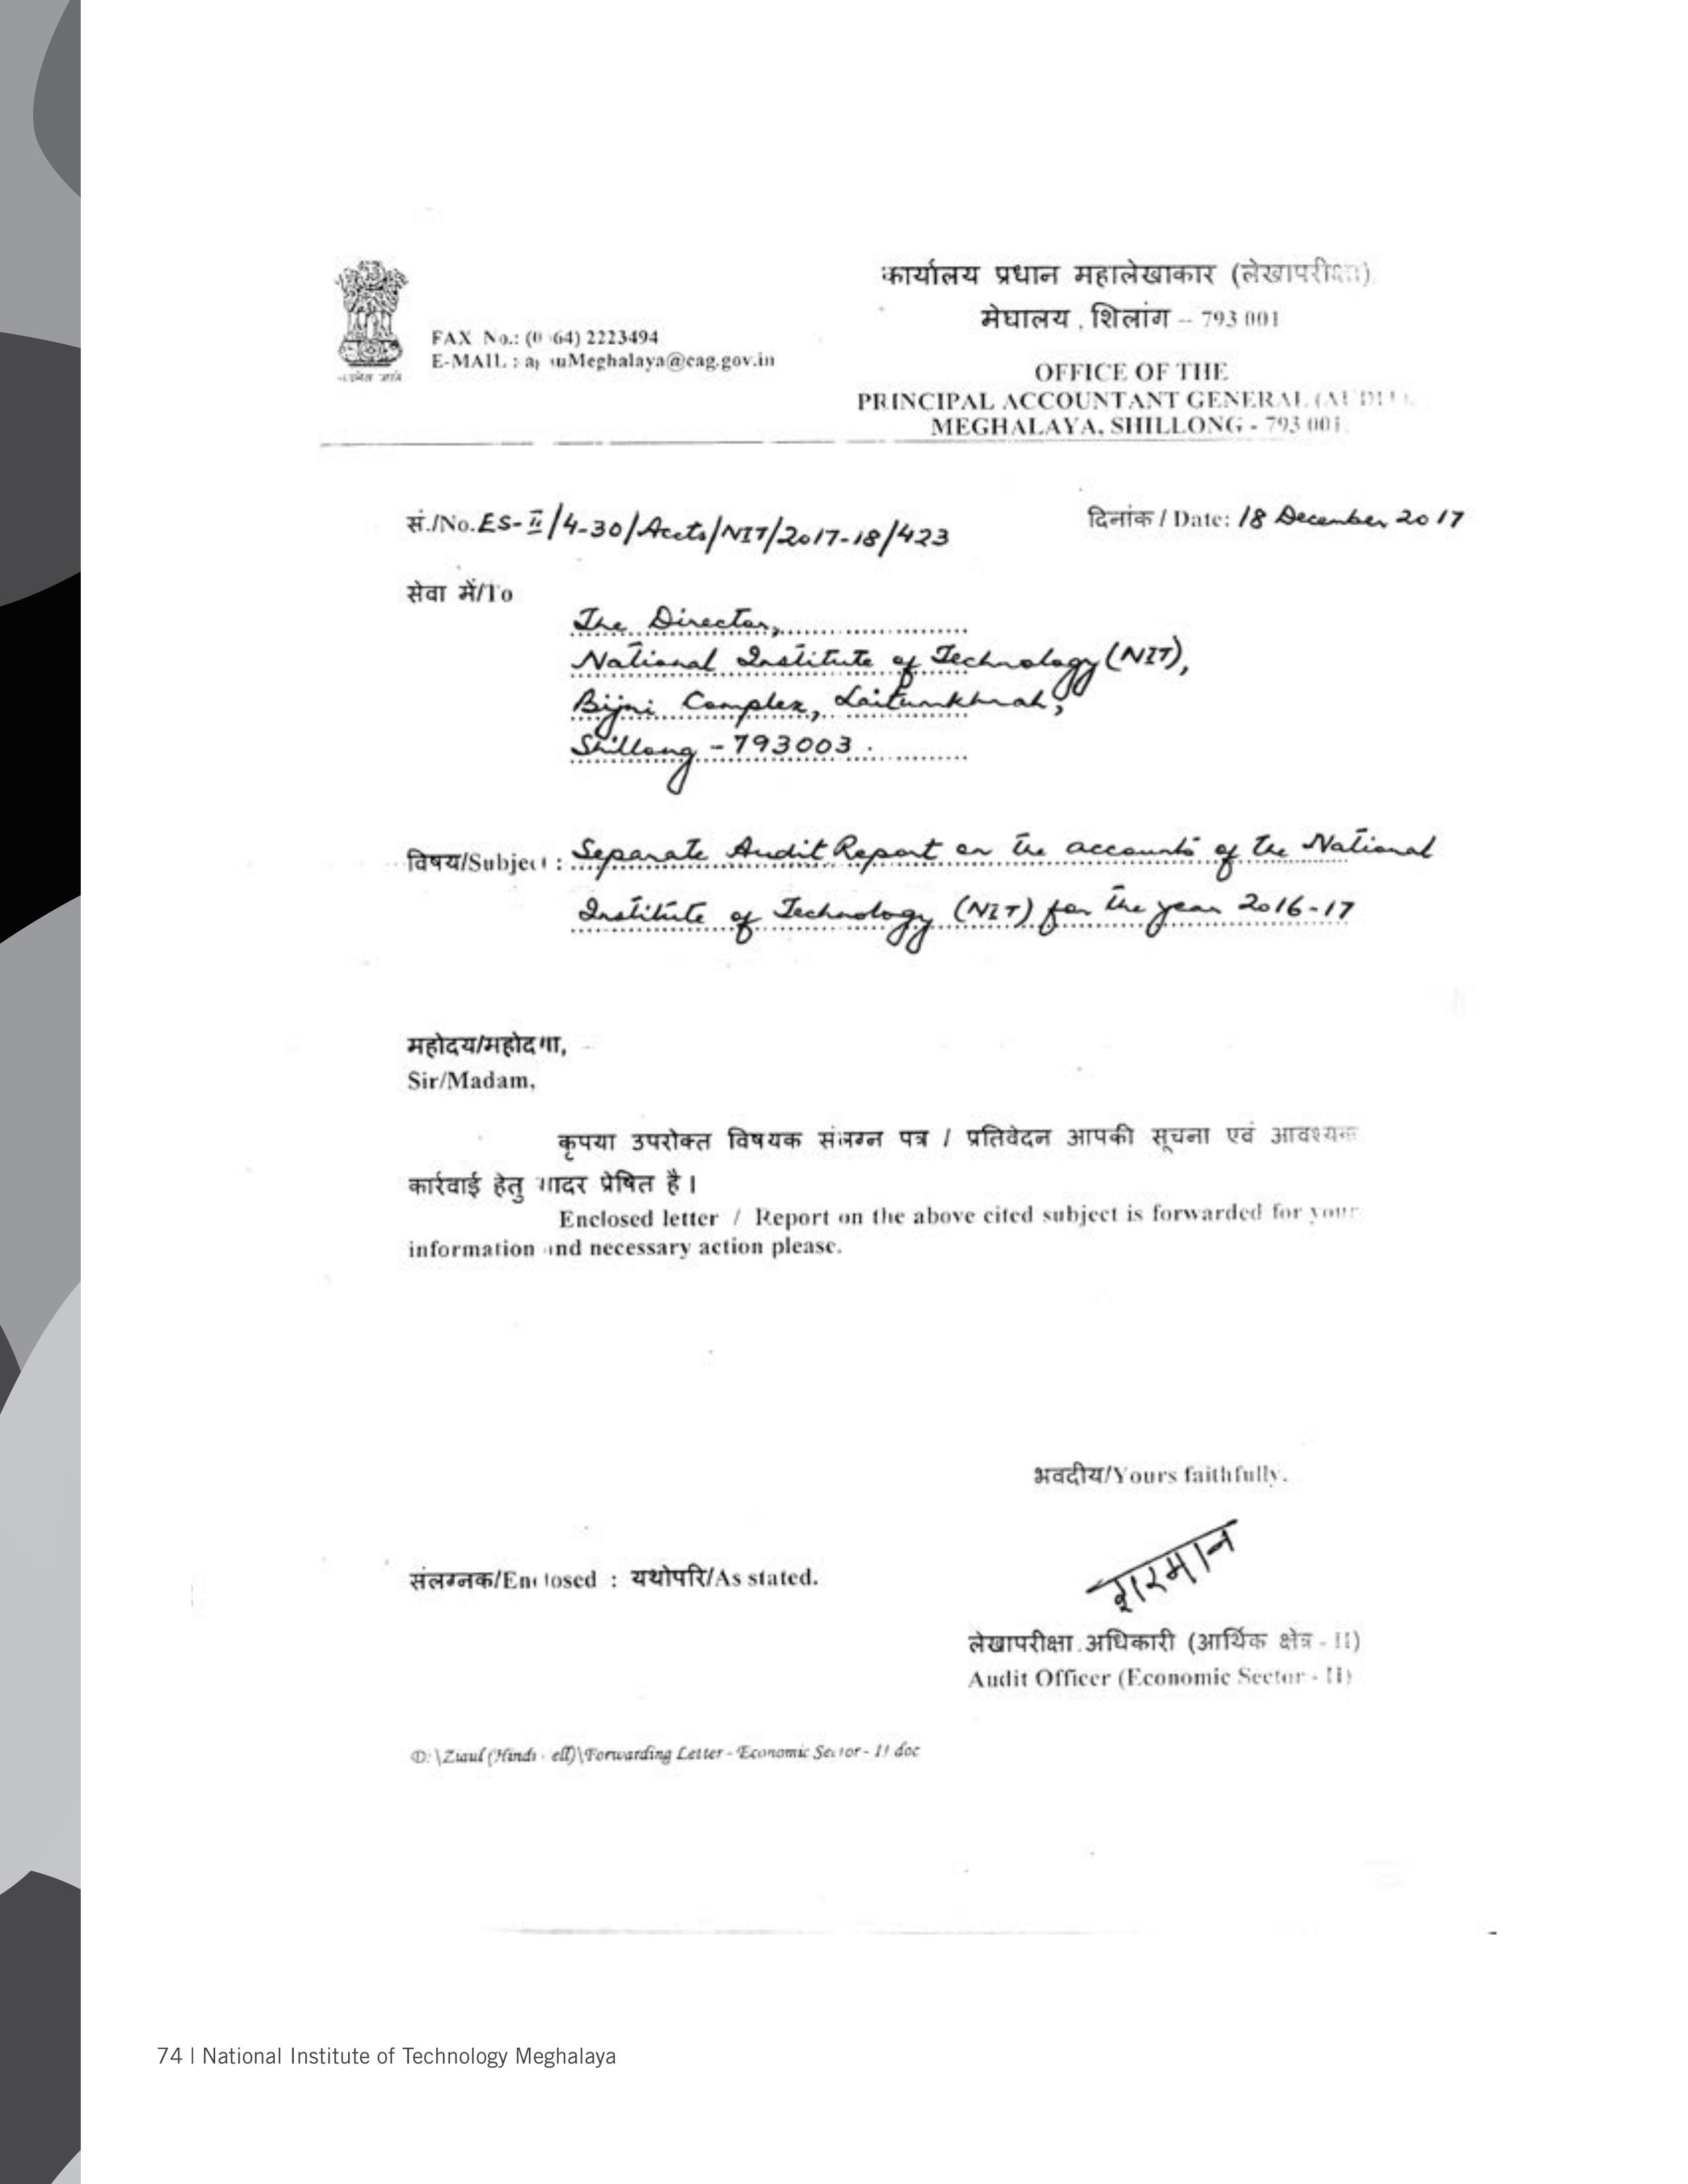 कार्यालय प्रधान महालेखाकार (लेखापरीक्षा)
मेघालय , शिलांग – 793 001
FAX No.: 64) 2223494
E-MAIL : uMeghalaya@cag.gov.in
OFFICE OF THE
PRINCIPAL ACCOUNTANT GENERAL (AUDIT),
MEGHALAYA, SHILLONG - 793 001.
सं./No. ES-II/4-30/Accts/NIT/2017-18/423
दिनांक / Date: 18 December 2017
सेवा में/To
The Director,
National Institute of Technology (NIT),
Bijni Complex, Laitumkhrah,
Shillong - 793003.
विषय/Subject : Separate Audit Report on the accounts of the National
Institute of Technology (NIT) for the year 2016-17
महोदय/महोदया,
Sir/Madam,
कृपया उपरोक्त विषयक संलग्न पत्र / प्रतिवेदन आपकी सूचना एवं आवश्यक
कार्रवाई हेतु सादर प्रेषित है।
Enclosed letter / Report on the above cited subject is forwarded for your
information and necessary action please.
भवदीय/Yours faithfully.
संलग्नक/Enclosed : यथोपरि/As stated.
लेखापरीक्षा अधिकारी (आर्थिक क्षेत्र - II)
Audit Officer (Economic Sector - II)
D:\Ziaul (Hindi elf)\Forwarding Letter - Economic Sector - II doc
74 | National Institute of Technology Meghalaya